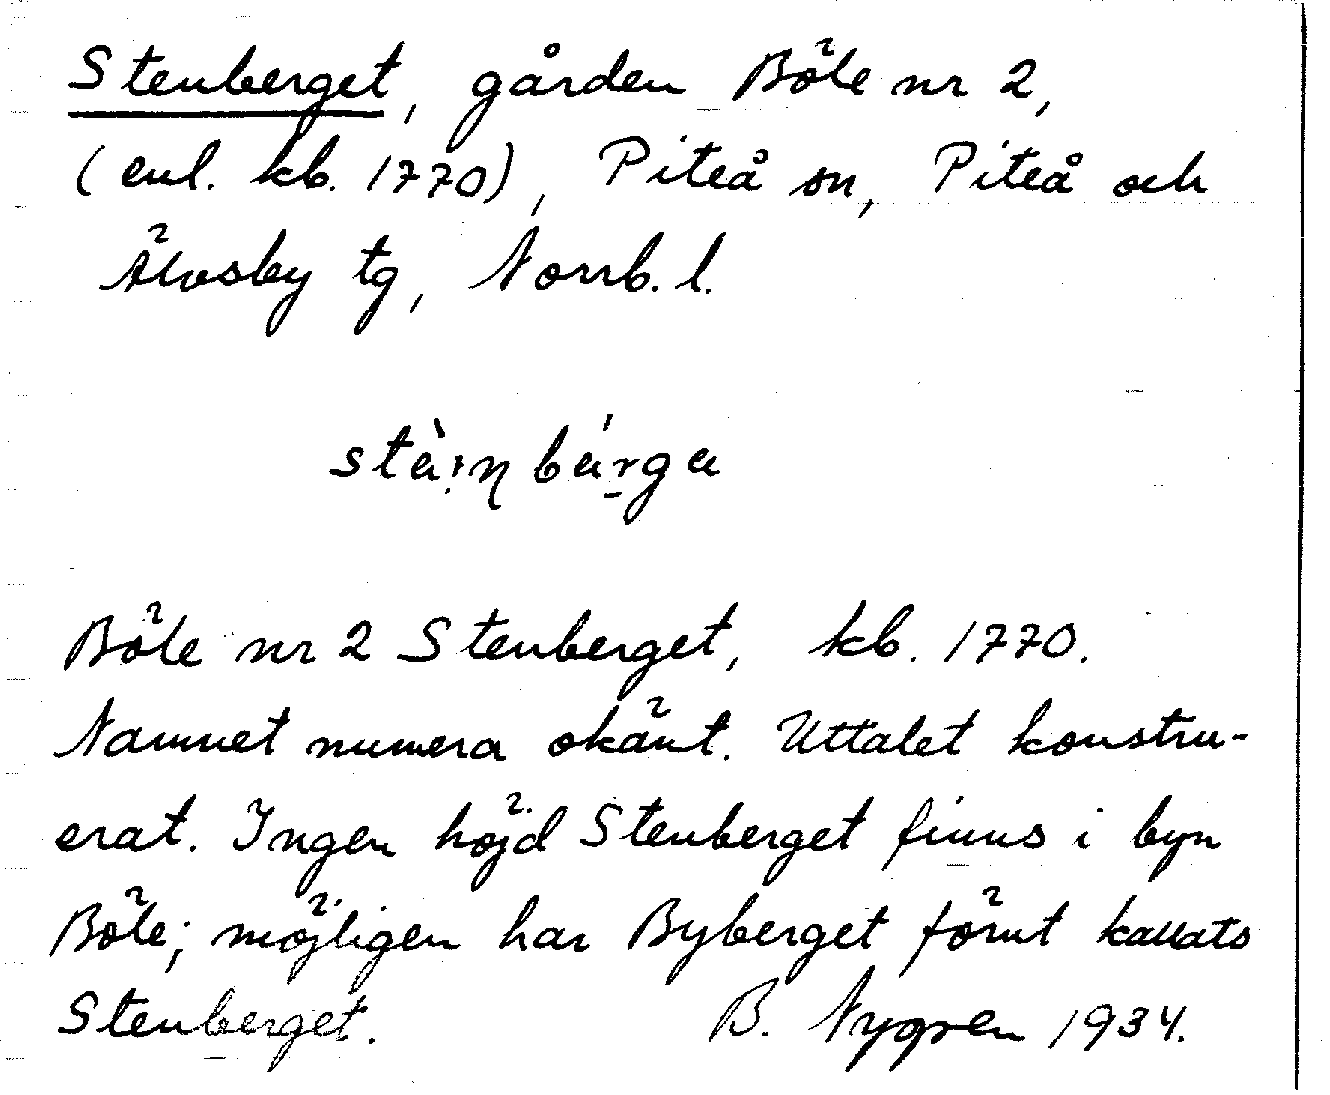 Stenberget, gården Böle nr 2,
(enl. kb. 1770), Piteå sn, Piteå och
Älvsby tg, Norrb. l.
Böle nr 2 Stenberget, kb. 1770.
Namnet numera okänt. Uttalet konstru-
erat. Ingen höjd Stenberget finns i byn
Böle; möjligen har Byberget förut kallats
Stenberget. B. Nygren 1934.